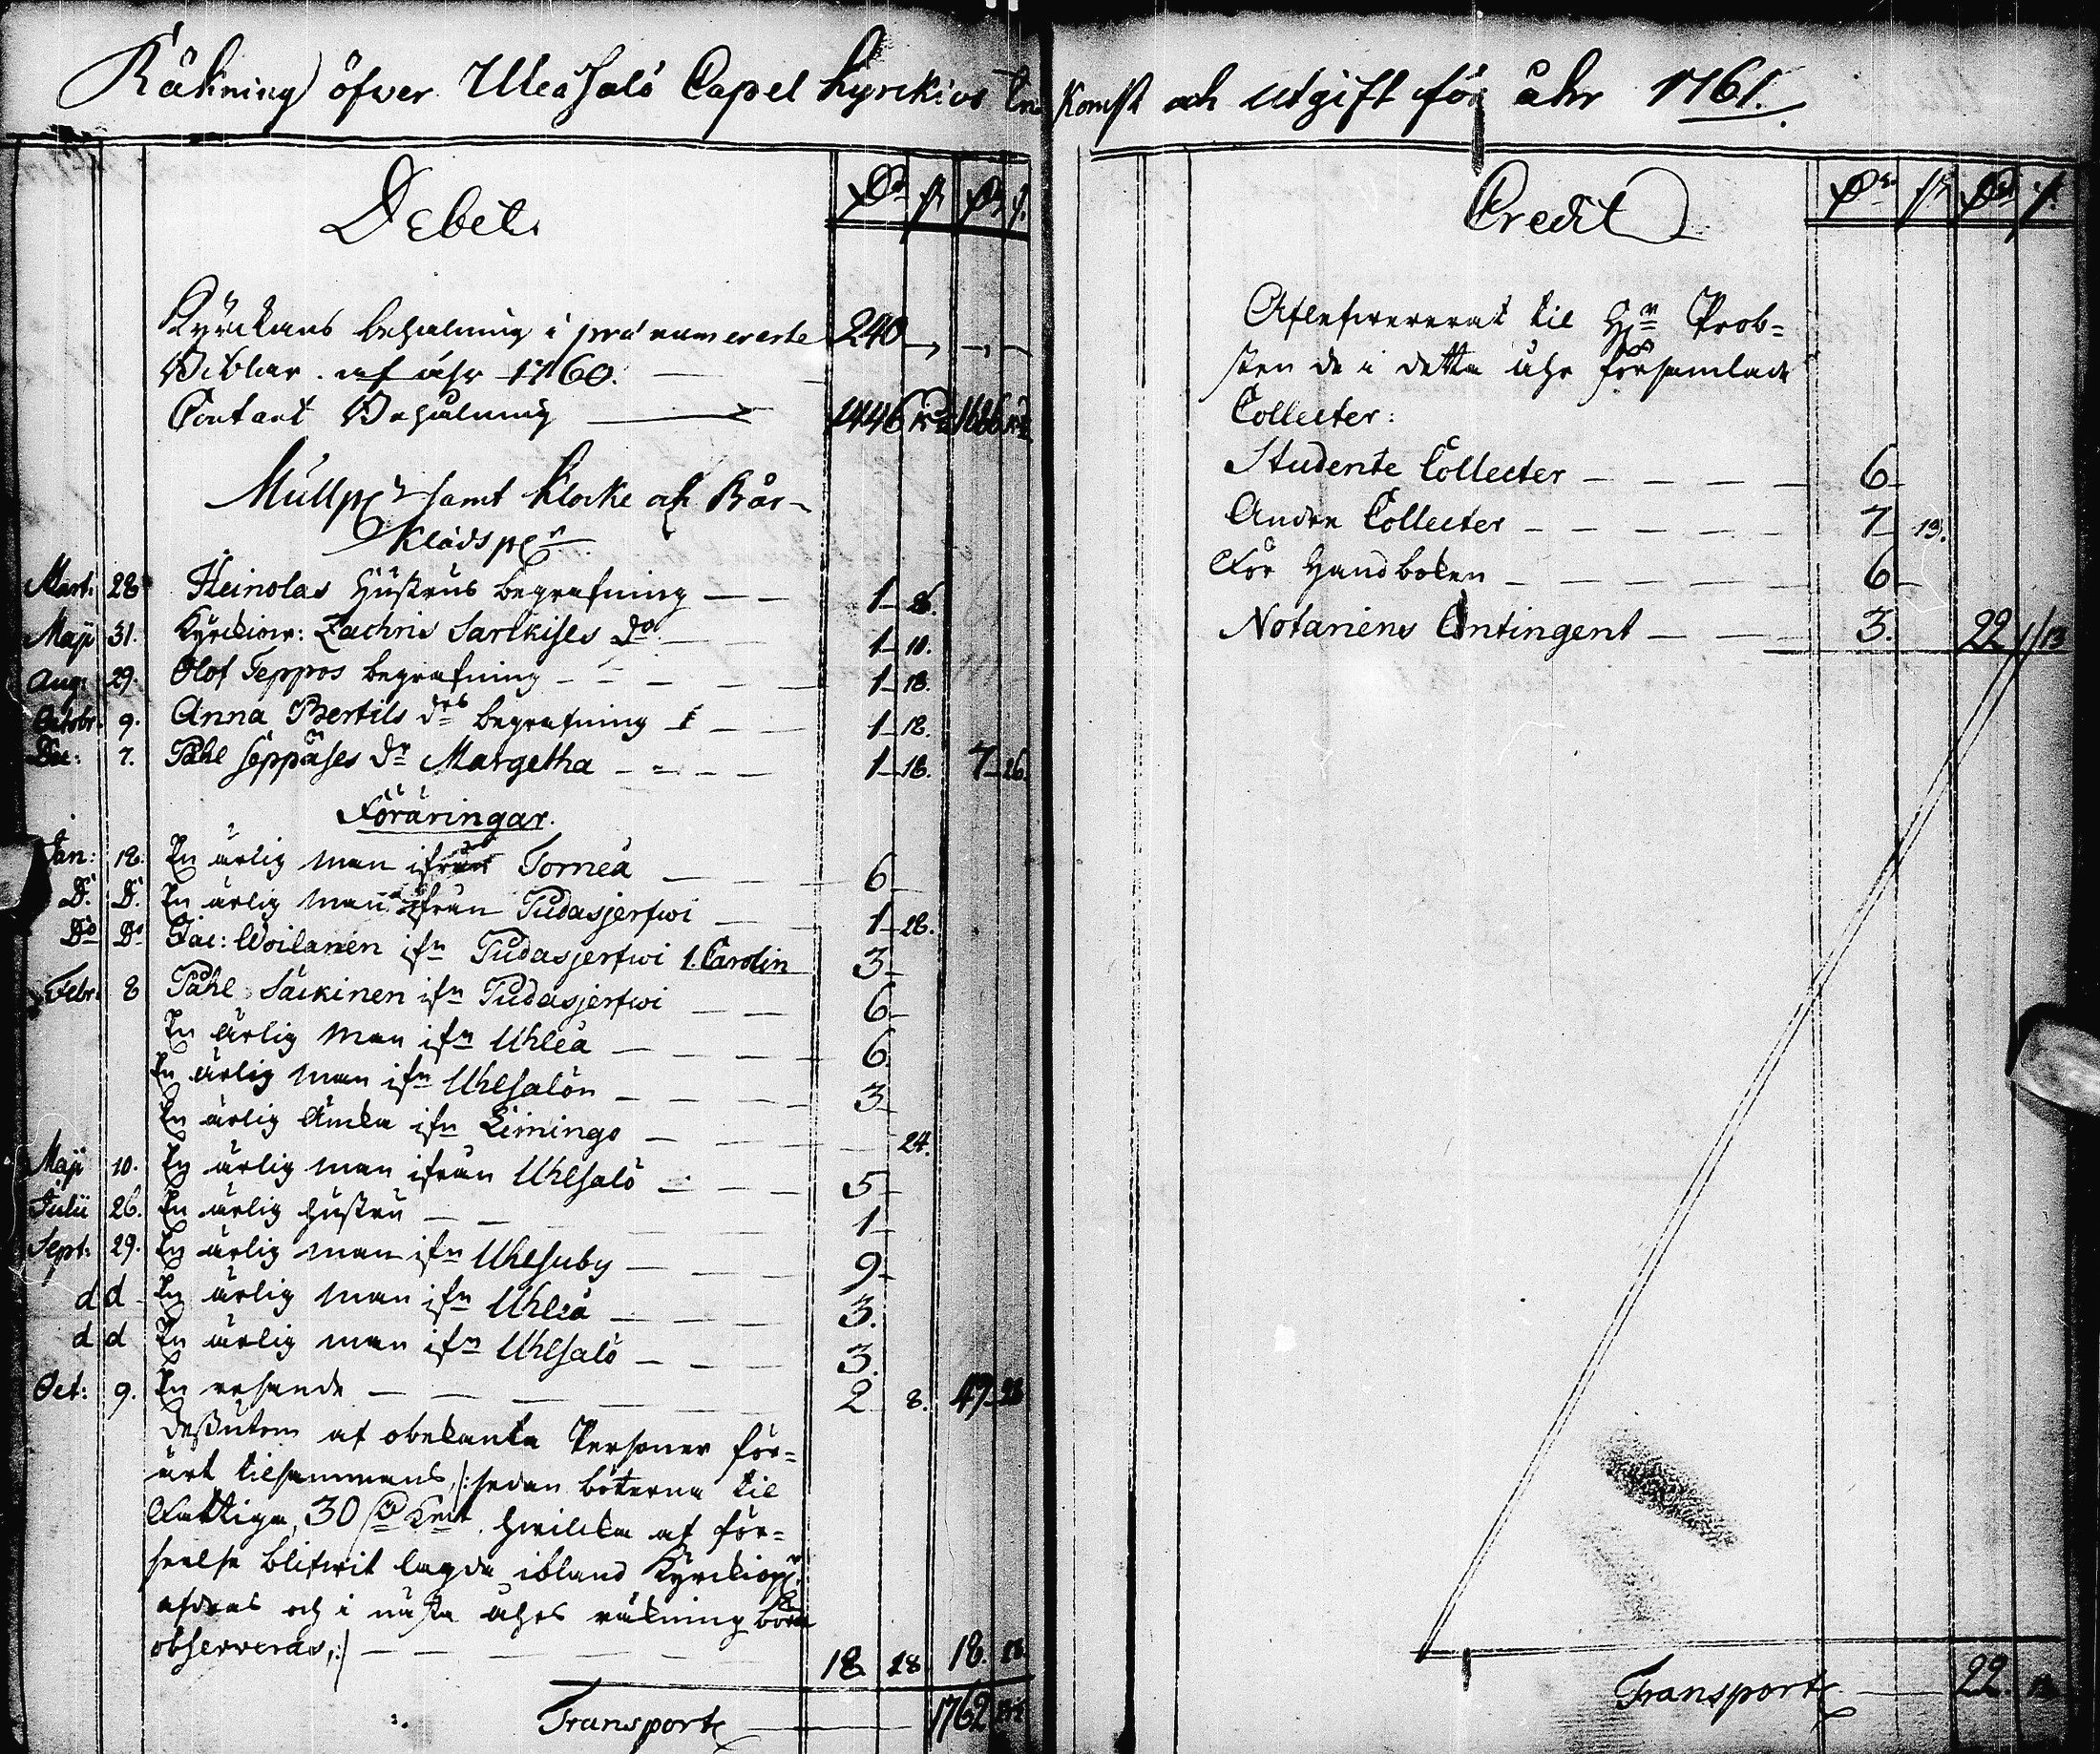 Räkning öfwer Uleåsalo Capel Kyrckios Inkomst och utgift för åhr 1761.
Debet.
Kyrckans behålning i prænumererte 240
Biblar af åhr 1760.
Contant Behålning 1446 1686
Mullpr samt Klocke och Bår-
klädspr
Mart: 28 Heinolas Hustrus begrafning 1 26.
Maji 31. Kyrckiow: Zachris Sarckises do 1 10.
Aug: 29. Olof Seppos begrafning 1 18.
Octobr. 9. Anna Bertils drs begrafning 1 12.
Dec: 7. Påhl Seppäses dr Margetha 1 18. 7 26.
Föräringar.
Jan: 12. En ärlig man ifrån Torneå 6
Do. Do. En ärlig man ifrån Pudasjerfwi 1 28.
Do Do Jac: Woilanen ifn Pudasjerfwi 1. Carolin 3
Febr. 8 Påhl Säckinen ifn Pudasjerfwi 6
En ärlig man ifn Uhleå 6
En ärlig man ifn Uhlsalon 3
En ärlig Äncka ifn Limingo 24.
Maji 10. En ärlig man ifrån Uhlsalo 5
Julii 26. En ärlig hustru 1
Sept: 29. En ärlig man ifn Uhlsuby 9
d d En ärlig man ifn Uhleå 3.
d d En ärlig man ifn Uhlsalo 3.
Oct: 9. En resande 2 8. 49 28
Dessutom af obekanta Personer för-
ärt tilsammans, /: sedan böterna til
Fattiga, 30 Kmt. hwilcka af för-
seelse blifwit lagda ibland Kyrckiopr.
afdras och i nästa åhrs räkning böra
observeras, :/ 18. 28 18. 28.
Transport 1762
Credit
Aflefwererat til Hr Prob-
sten de i detta åhr församlade
Collecter:
Studente Collecter 6
Andra Collecter 7 13.
För Handboken 6
Notariens Contingent 3. 22 13
Transport 22. 13